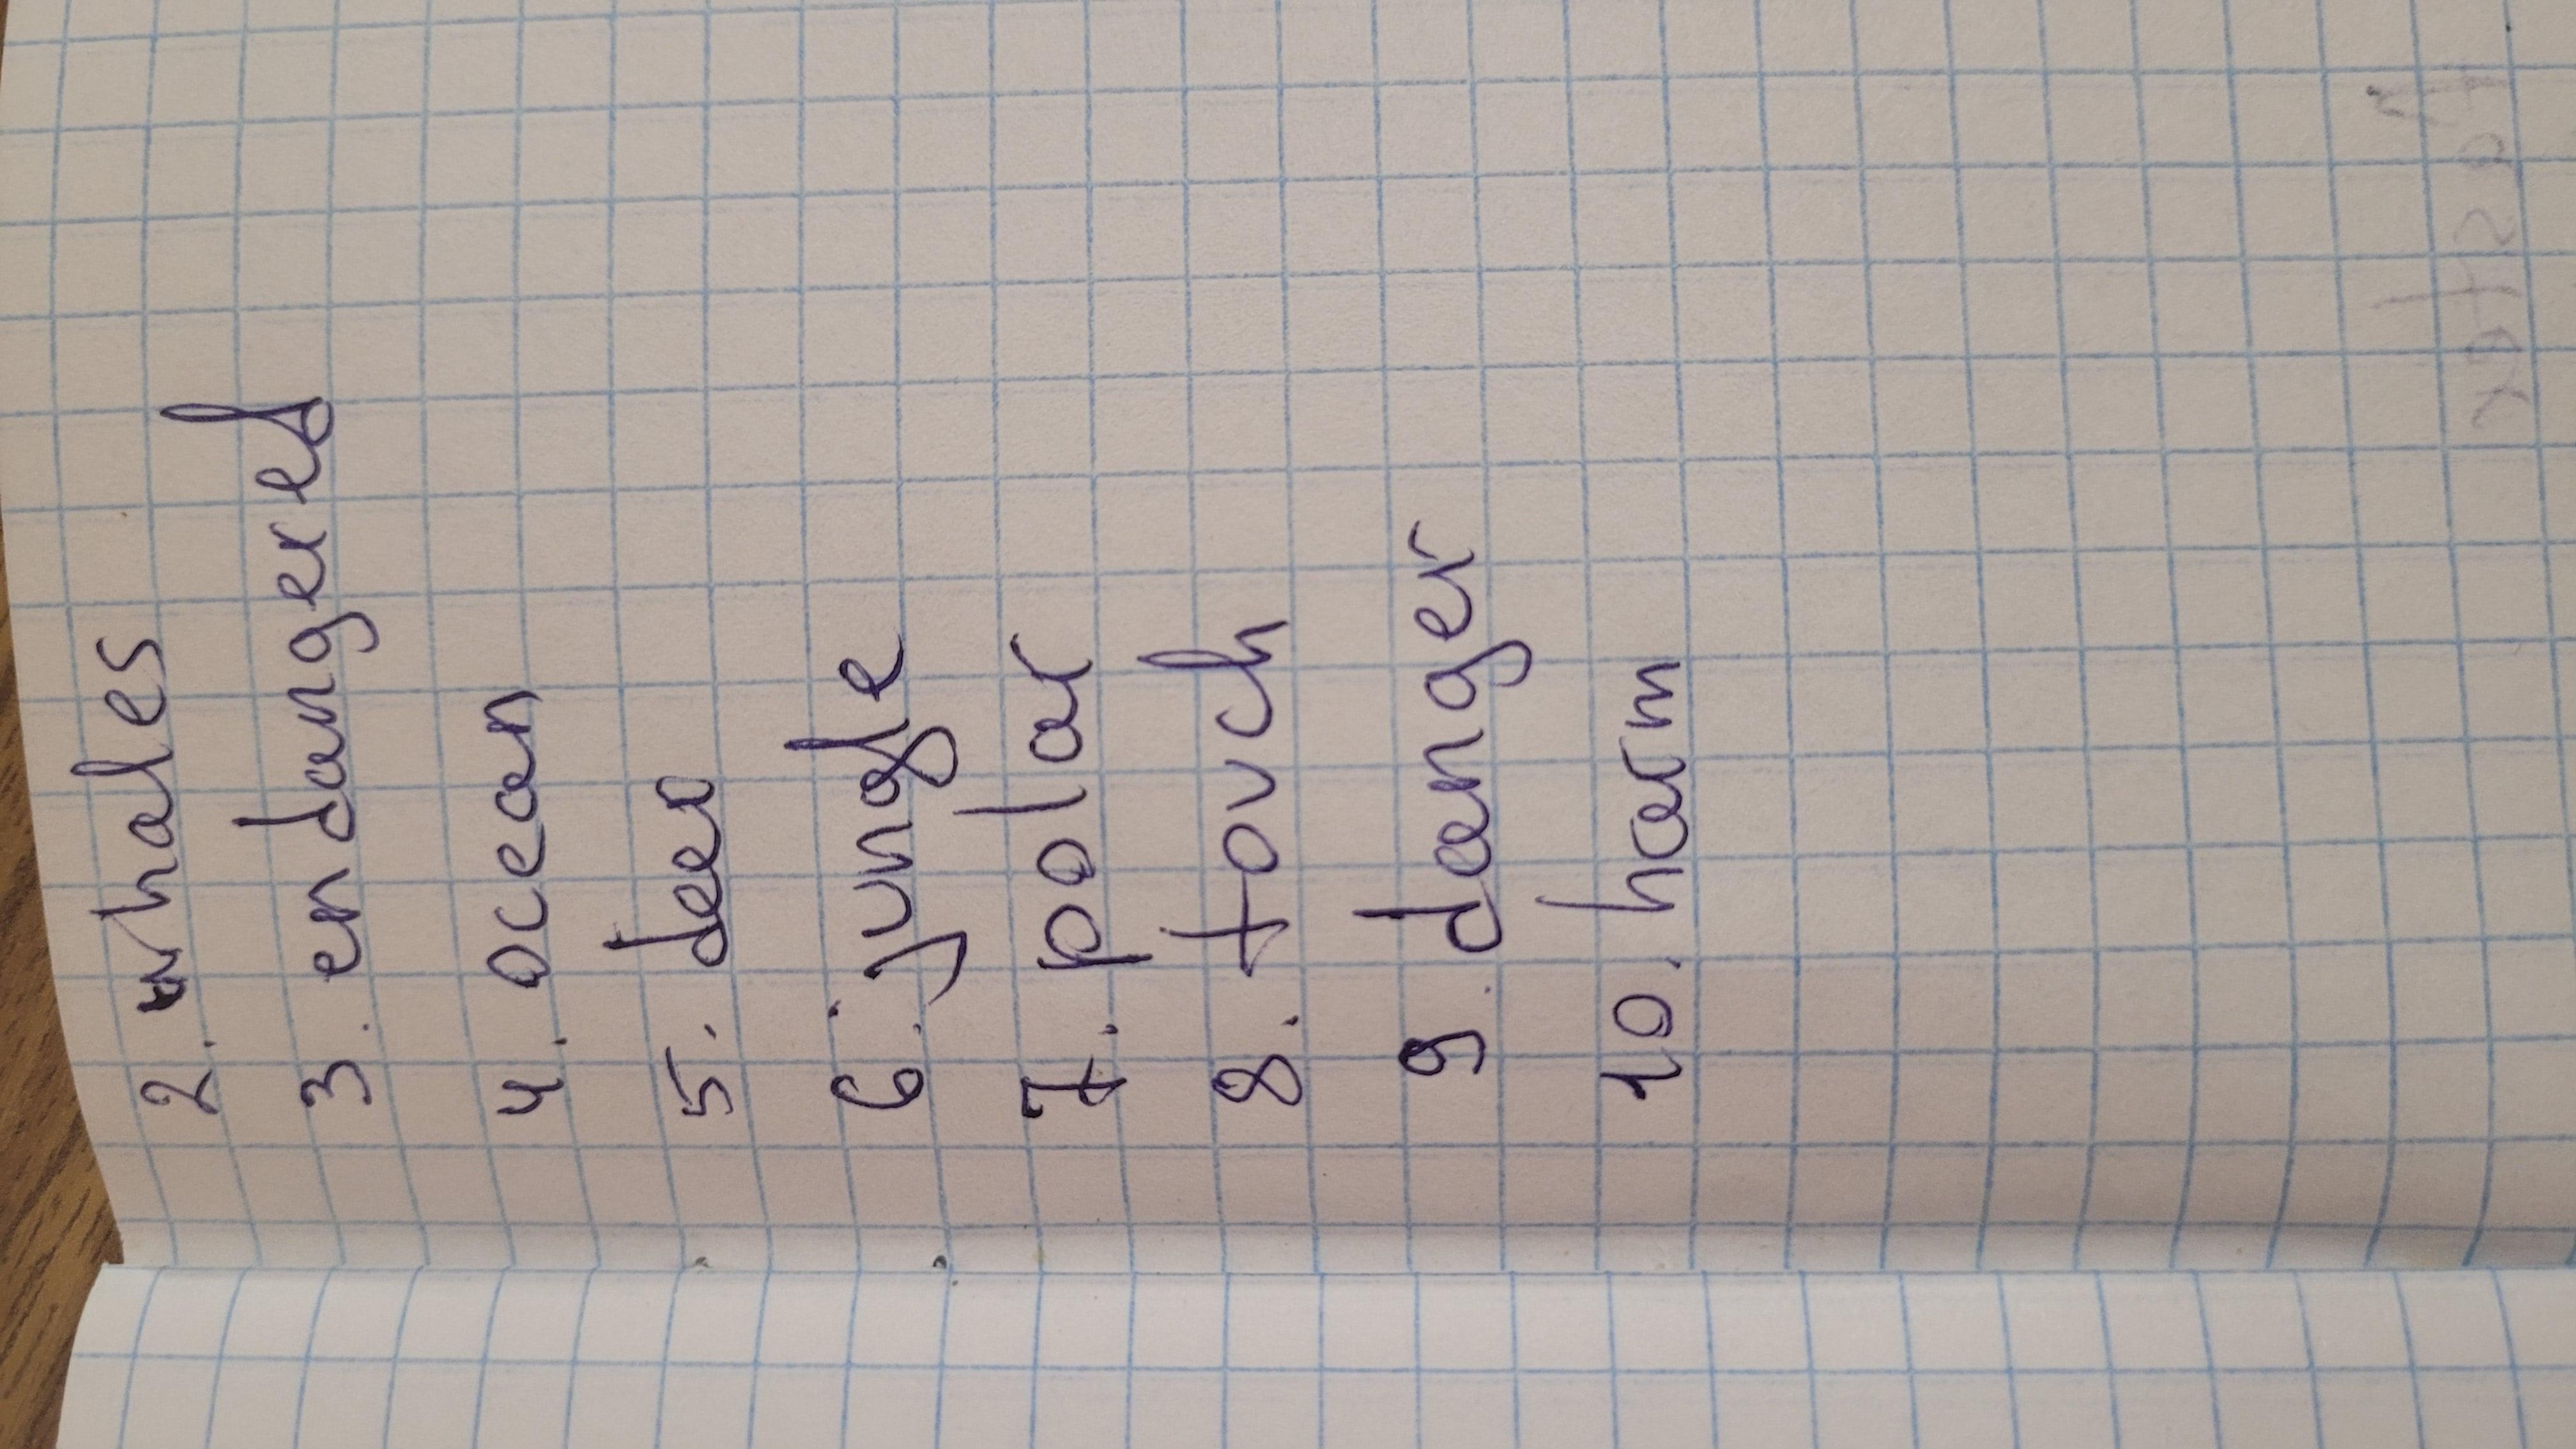 2. whales
3. endangered
4. ocean
5.
6. jungle
7. polar
8. touch
9. danger
10. harm